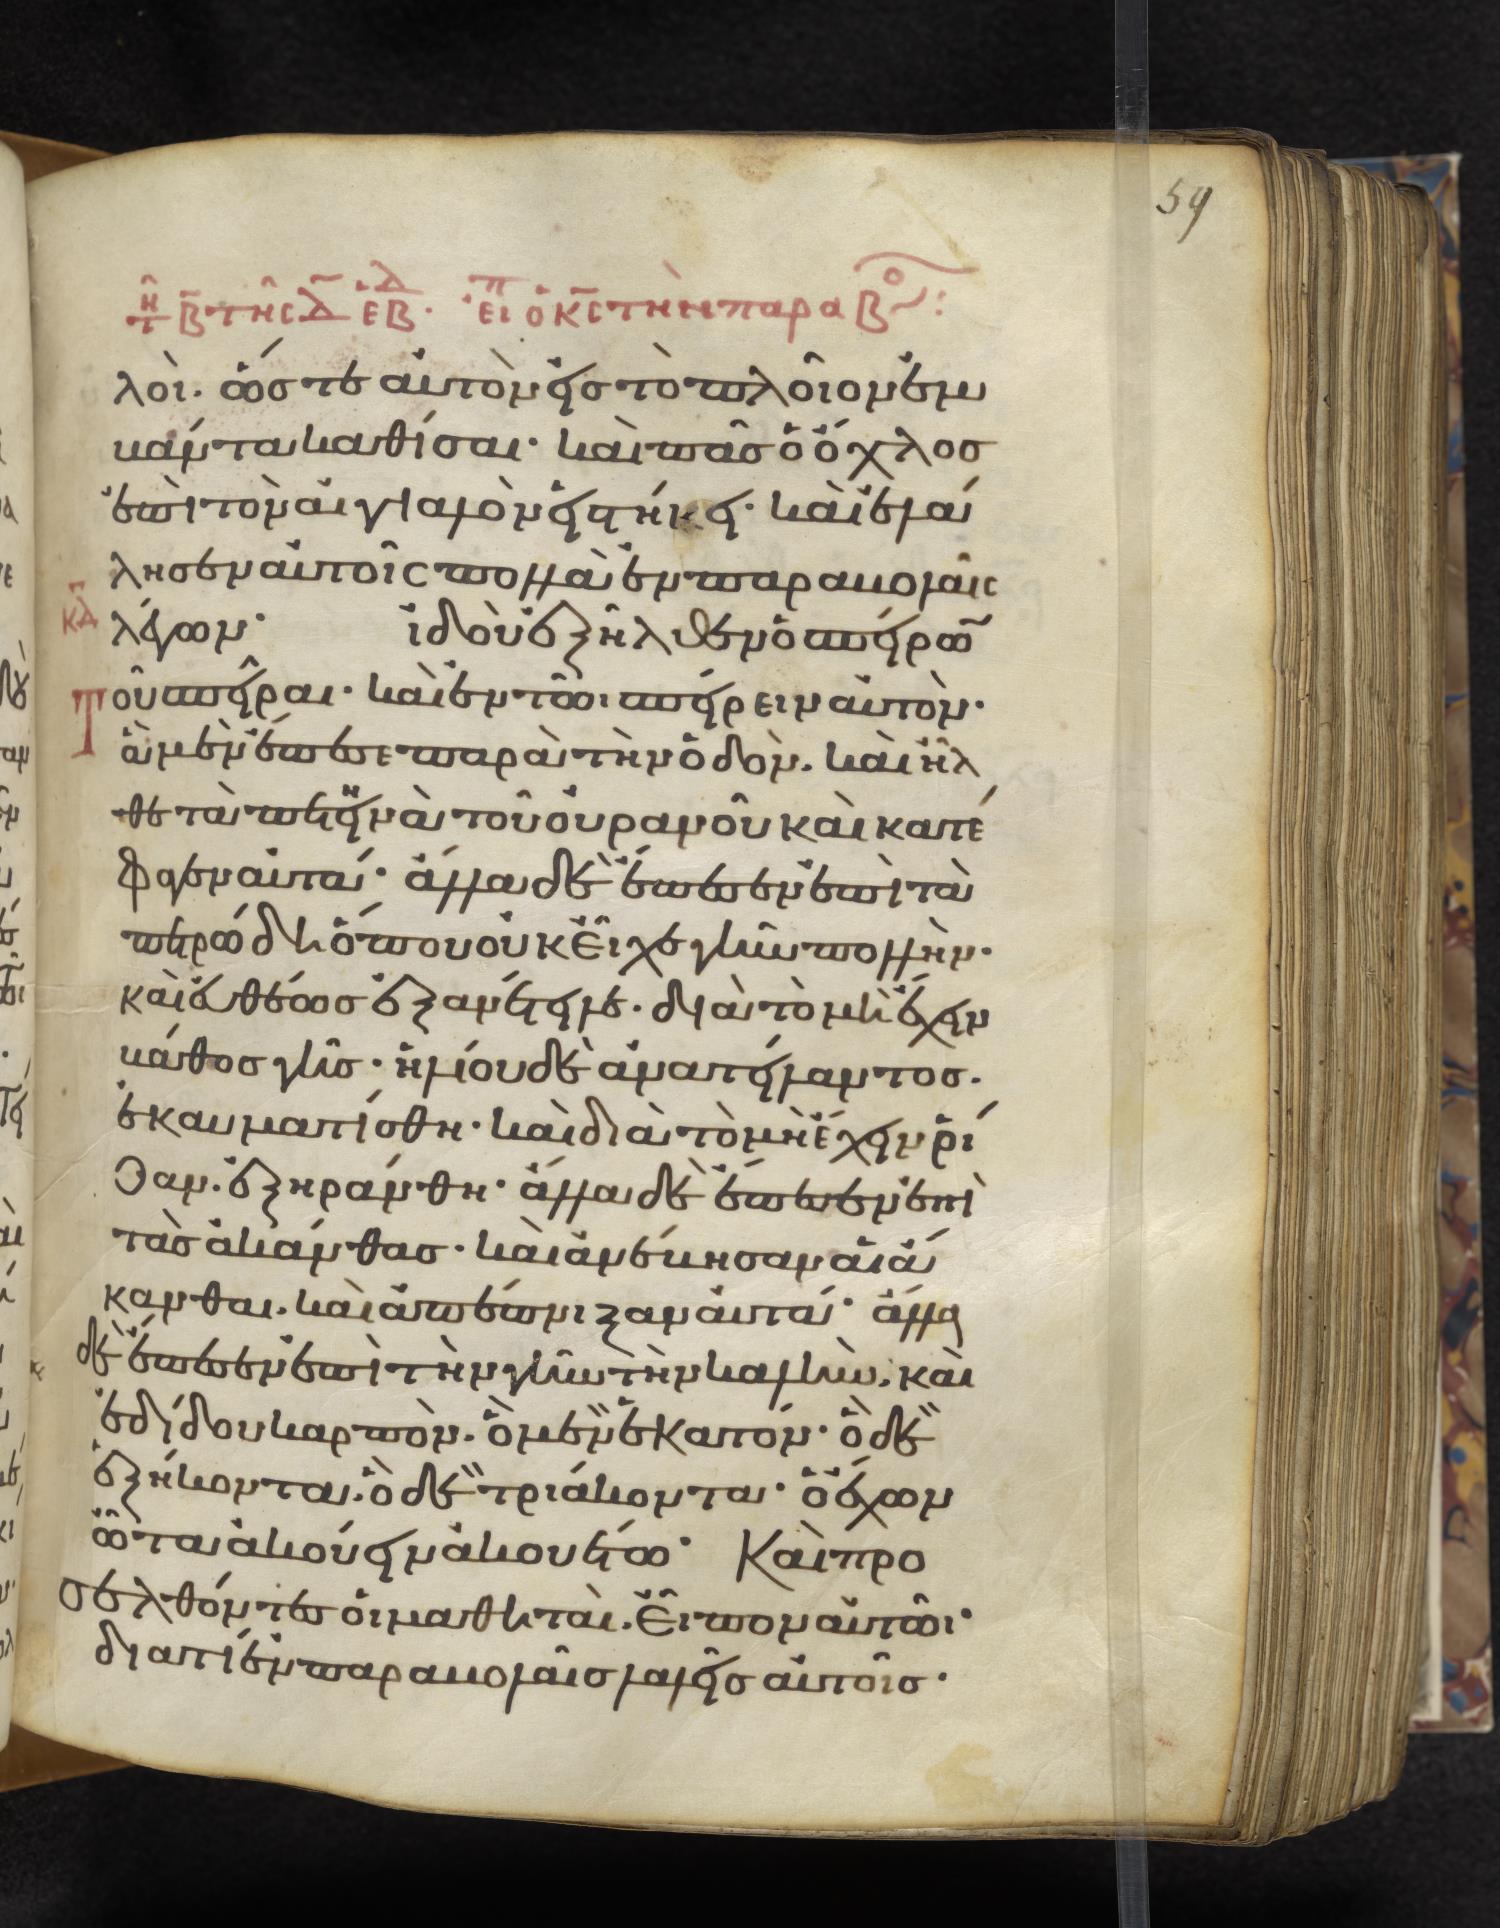 59
λοι. ὥστε αὐτὸν εἰς τὸ πλοῖον ἐμ
βάντα καθίσαι· καὶ πᾶς ὁ ὄχλος
ἐπὶ τὸν αἰγιαλὸν εἱστήκει· καὶ ἐλά
λησεν αὐτοῖς πολλὰ ἐν παραβολαῖς
λέγων· ἰδοὺ ἐξῆλθεν ὁ σπείρω̃
Τοῦ σπεῖραι· καὶ ἐν τῶι σπείρειν αὐτὸν·
ἃ μὲν ἔπεσε παρὰ τὴν ὁδόν. καὶ ἦλ
θε τὰ πετεινὰ τοῦ οὐρανοῦ καὶ κατέ
φαγεν αὐτά· ἄλλα δὲ ἔπεσεν ἐπὶ τὰ
πετρώδη ὅπου οὐκ εἶχε γῆν πολλήν·
καὶ εὐθέως ἐξανέτειλε· διὰ τὸ μὴ ἔχειν
βάθος γῆς· ἡλίου δὲ ἀνατείλαντος·
ἐκαυματίσθη· καὶ διὰ τὸ μὴ ἔχειν ῥί
ζαν. ἐξηράνθη· ἄλλα δὲ ἔπεσεν ἐπὶ
τὰς ἀκάνθας· καὶ ἀνέβησαν αἱ ἄ
κανθαι. καὶ ἀπέπνιξαν αὐτά· ἄλλα
δὲ ἔπεσεν ἐπὶ τὴν γῆν τὴν καλήν. καὶ
ἐδίδου καρπόν. ὃ μὲν ἑκατόν· ὃ δὲ
ἑξήκοντα. ὃ δὲ τριάκοντα· ὁ ἔχων
ὦτα ἀκούειν ἀκουέτω· Καὶ προ
σελθόντες οἱ μαθηταί. εἶπον αὐτῶι·
διατί ἐν παραβολαῖς λαλεῖς αὐτοῖς·